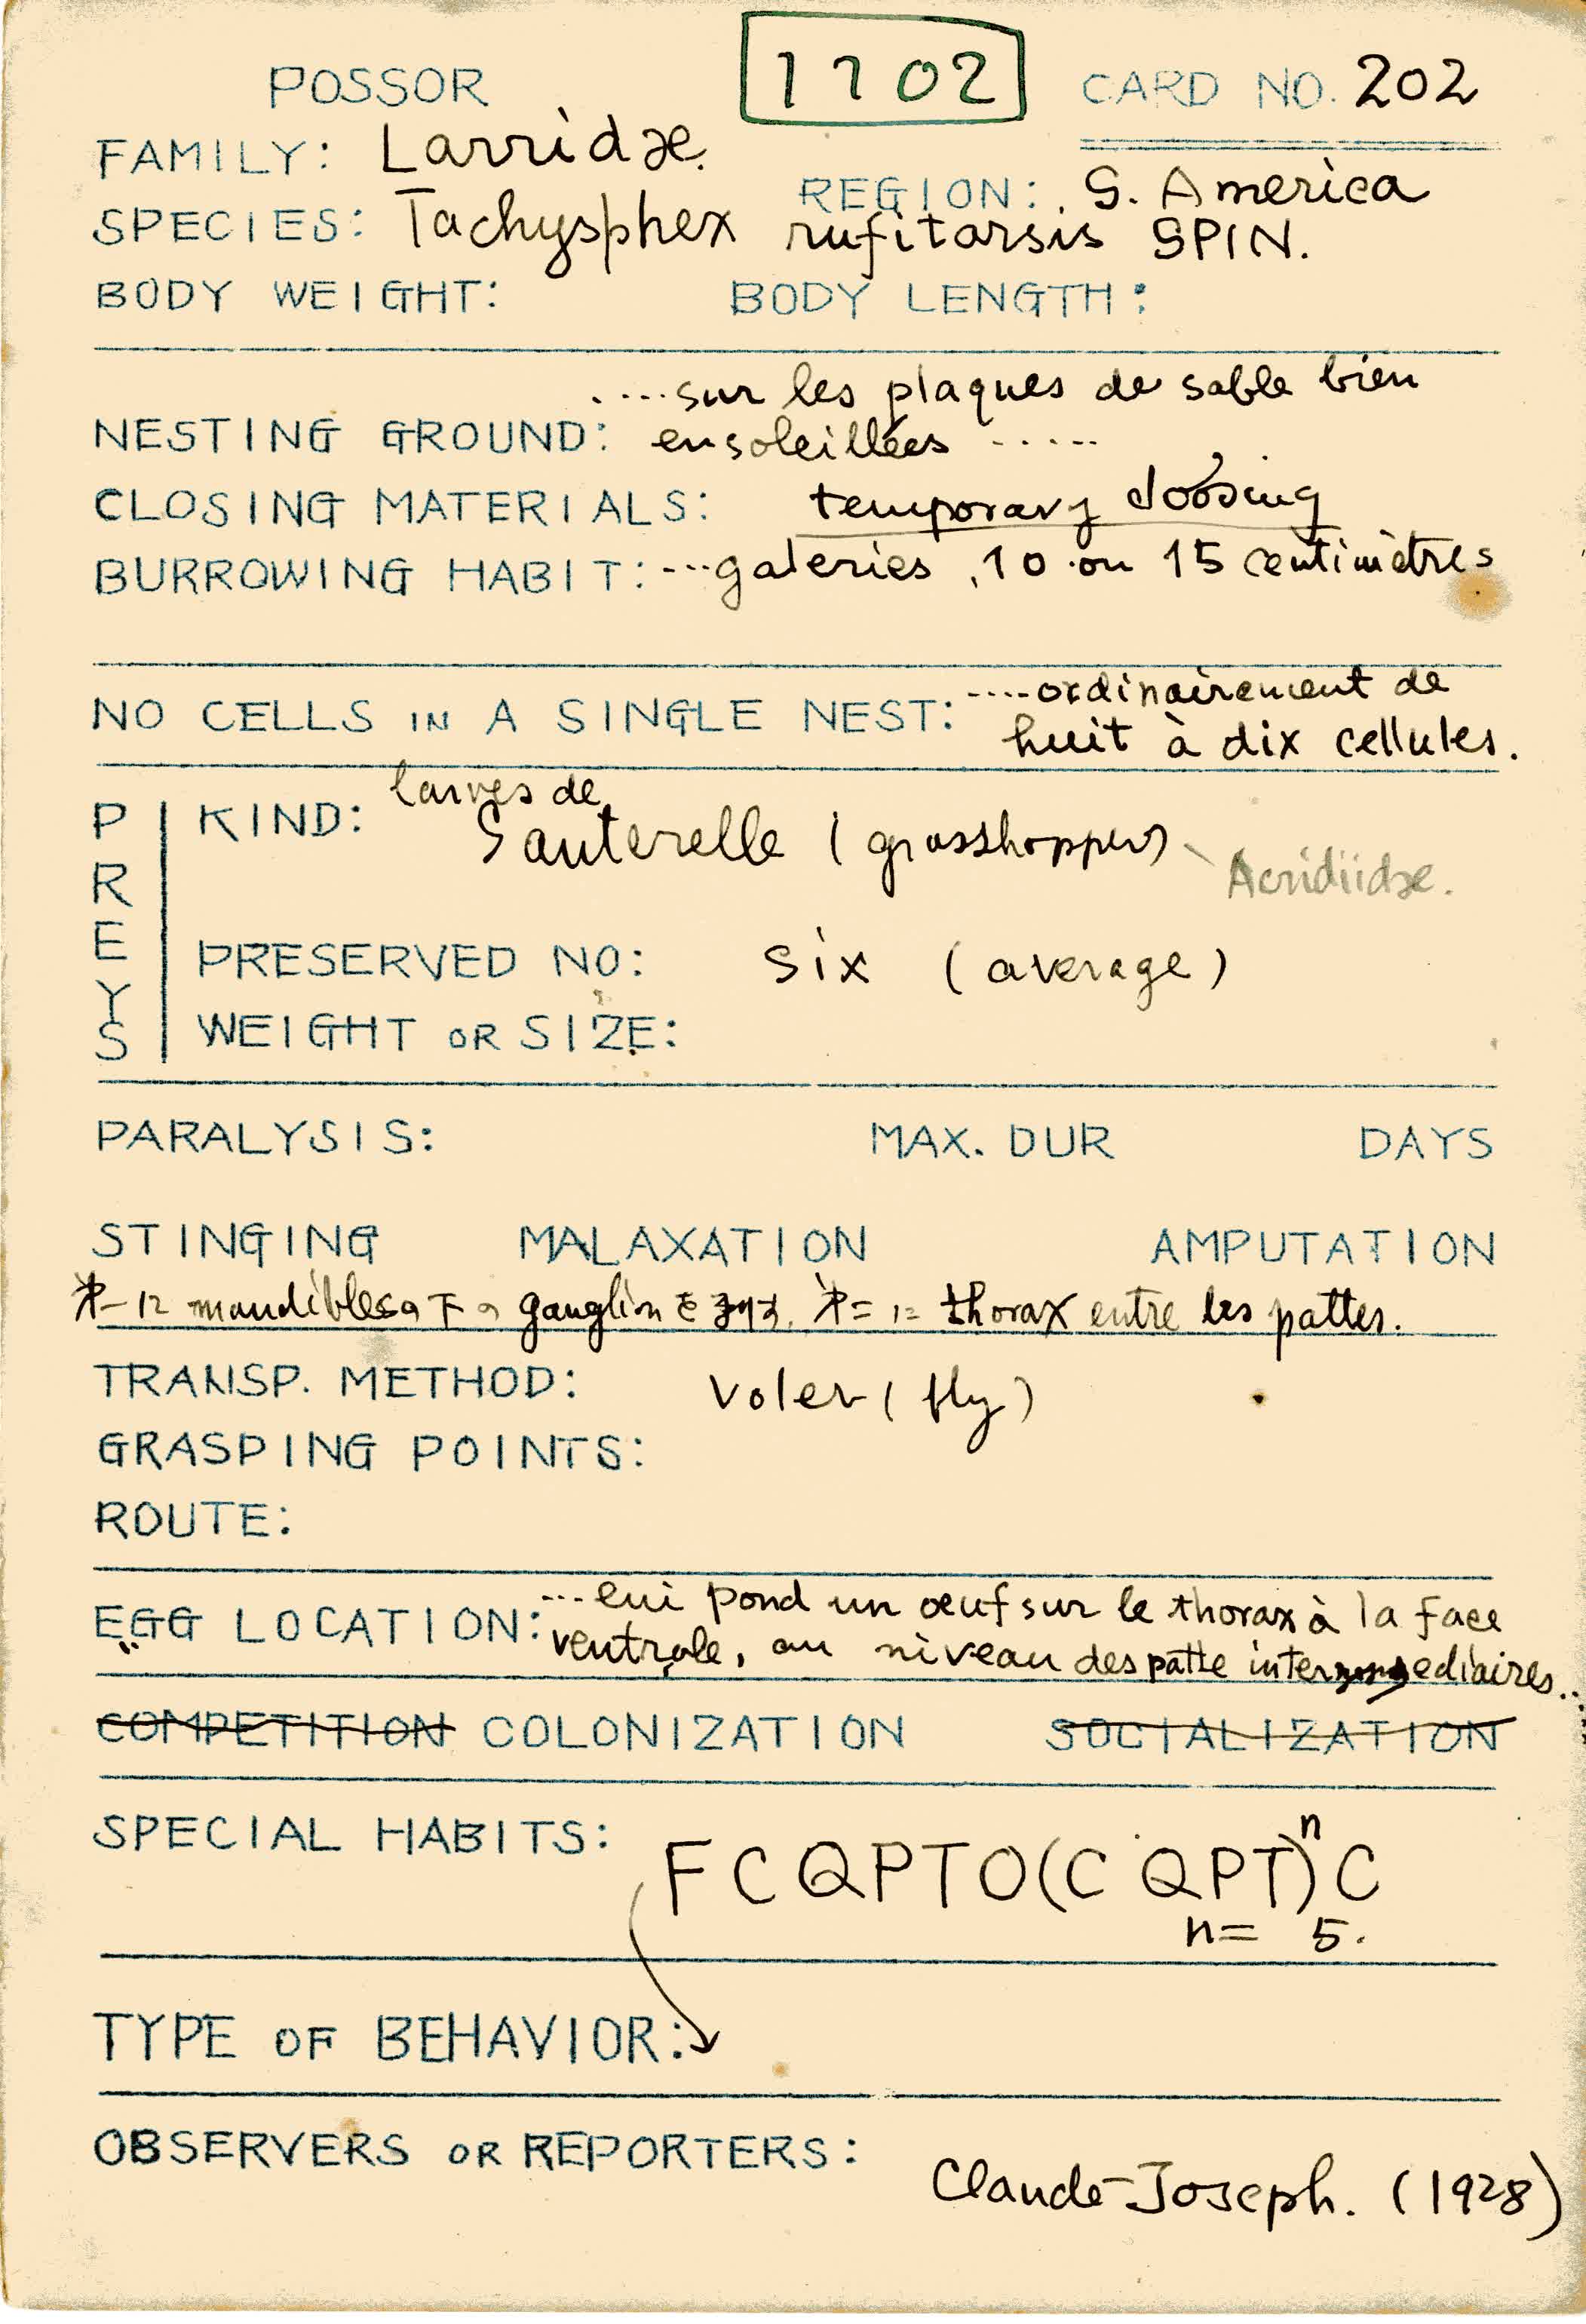 POSSOR
1702
CARD NO. 202
FAMILY: Larridæ.
REGION: S. America
SPECIES: Tachysphex rufitarsis SPIN.
BODY WEIGHT: BODY LENGTH:
....sur les plaques de sable bien
NESTING GROUND: ensoleillées .....
CLOSING MATERIALS: temporary closing
BURROWING HABIT: ...galeries, 10 ou 15 centimètres
....ordinairement de
NO CELLS IN A SINGLE NEST: huit à dix cellules.
PREYS
larves de
KIND: Sauterelle (grasshopper)
Acridiidæ.
PRESERVED NO: six (average)
WEIGHT OR SIZE:
PARALYSIS: MAX. DUR DAYS
STINGING MALAXATION AMPUTATION
オ一ニ mandiblesノ下ノ ganglion ヲ オ二ニ thorax entre les pattes.
TRANSP. METHOD: voler (fly)
GRASPING POINTS:
ROUTE:
EGG LOCATION: ... lui pond un œuf sur le thorax à la face
ventrale, au niveau des patte intermediaires...
COMPETITION COLONIZATION SOCIALIZATION
SPECIAL HABITS: FCQPTO(CQPT)ⁿC
n= 5.
TYPE OF BEHAVIOR:
OBSERVERS OR REPORTERS:
Claude-Joseph. (1928)